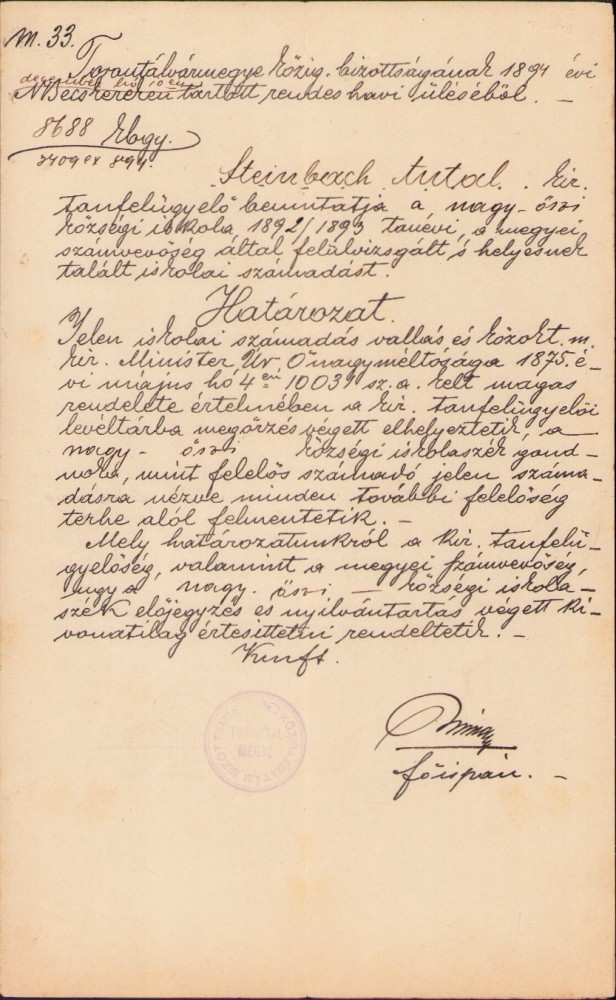 m. 33.
Torontálvármegye közig. bizottságának 1894 évi
december hó 10 én
N Becskereken tartott rendes havi üléséből. —
8688 kbgy.
3409 ex 894.
Steinbach Antal . kir.
tanfelügyelő bemutatja a nagy- őszi
községi iskola 1892/1893 tanévi, a megyei
számvevőség által felülvizsgált s helyesnek
talált iskolai számadást.
Határozat.
Jelen iskolai számadás vallás és közokt. m.
kir. Minister Úr Őnagyméltósága 1875. é-
vi május hó 4 én 10039 sz. a. kelt magas
rendelete értelmében a kir. tanfelügyelői
levéltárba megőrzés végett elhelyeztetik, a
nagy- őszi községi iskolaszék gond-
noka, mint felelős számadó jelen száma-
dásra nézve minden további felelőség
terhe alól felmentetik. —
Mely határozatunkról a kir. tanfelü-
gyelőség, valamint a megyei számvevőség,
ugy a nagy. őszi — községi iskola-
szék előjegyzés es nyilvántartás végett ki-
vonatilag értesittetni rendeltetik. —
Kmft.
főispán. —
MEGYE